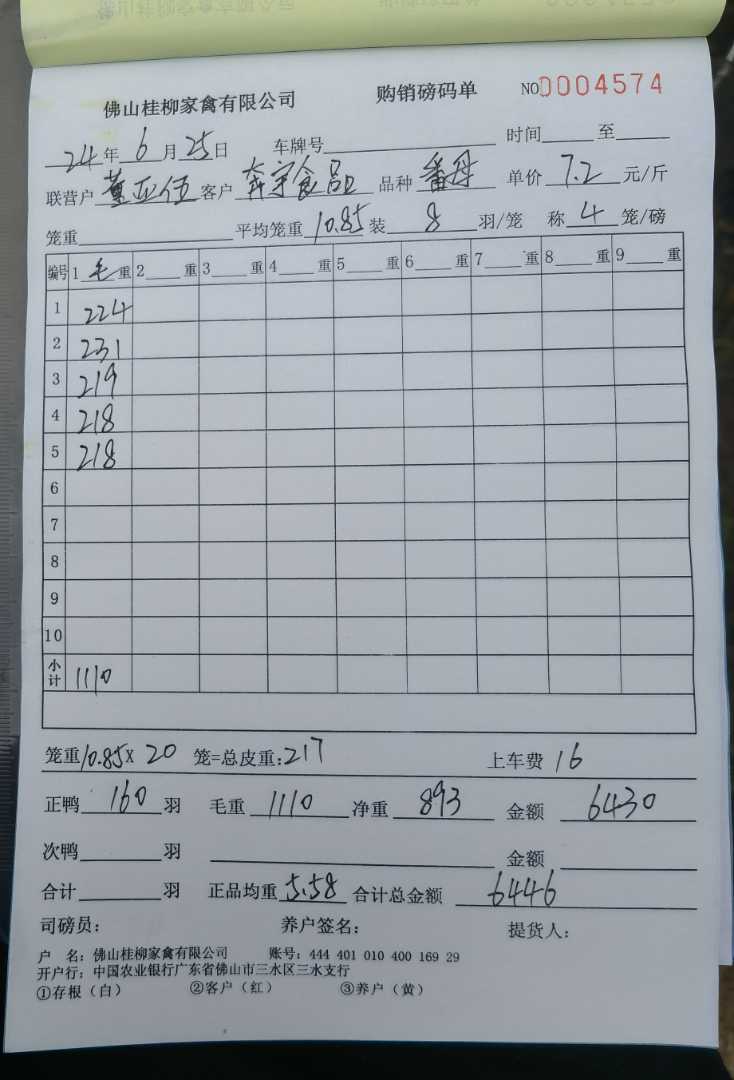 佛山桂柳家禽有限公司 购销磅码单 NO0004574
24年6月25日 车牌号 时间 至
联营户 董亚伍 客户 奔宇食品 品种 番母 单价 7.2 元/斤
笼重 平均笼重 10.85 装 8 羽/笼 称 4 笼/磅
编号 1 毛 重 2 重 3 重 4 重 5 重 6 重 7 重 8 重 9 重
1 224
2 231
3 219
4 218
5 218
6
7
8
9
10
小计 1110
笼重10.85X 20 笼=总皮重:217 上车费 16
正鸭 160 羽 毛重 1110 净重 893 金额 6430
次鸭 羽 金额
合计 羽 正品均重 5.58 合计总金额 6446
司磅员: 养户签名: 提货人:
户 名: 佛山桂柳家禽有限公司 账号: 444 401 010 400 169 29
开户行: 中国农业银行广东省佛山市三水区三水支行
①存根(白) ②客户(红) ③养户(黄)